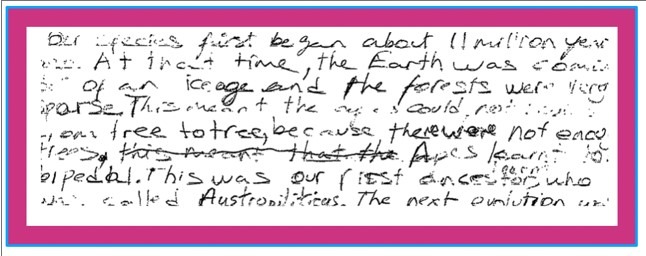 Our species first began about 11 million year
At that time, the Earth was comi
of an iceage and the forests were very
sparse. This meant the apes could not
from tree to tree, because there were not enou
trees, this meant that the Apes learnt to
bipedal. This was our first ancestor, who
was called Austropiliticus. The next evolution